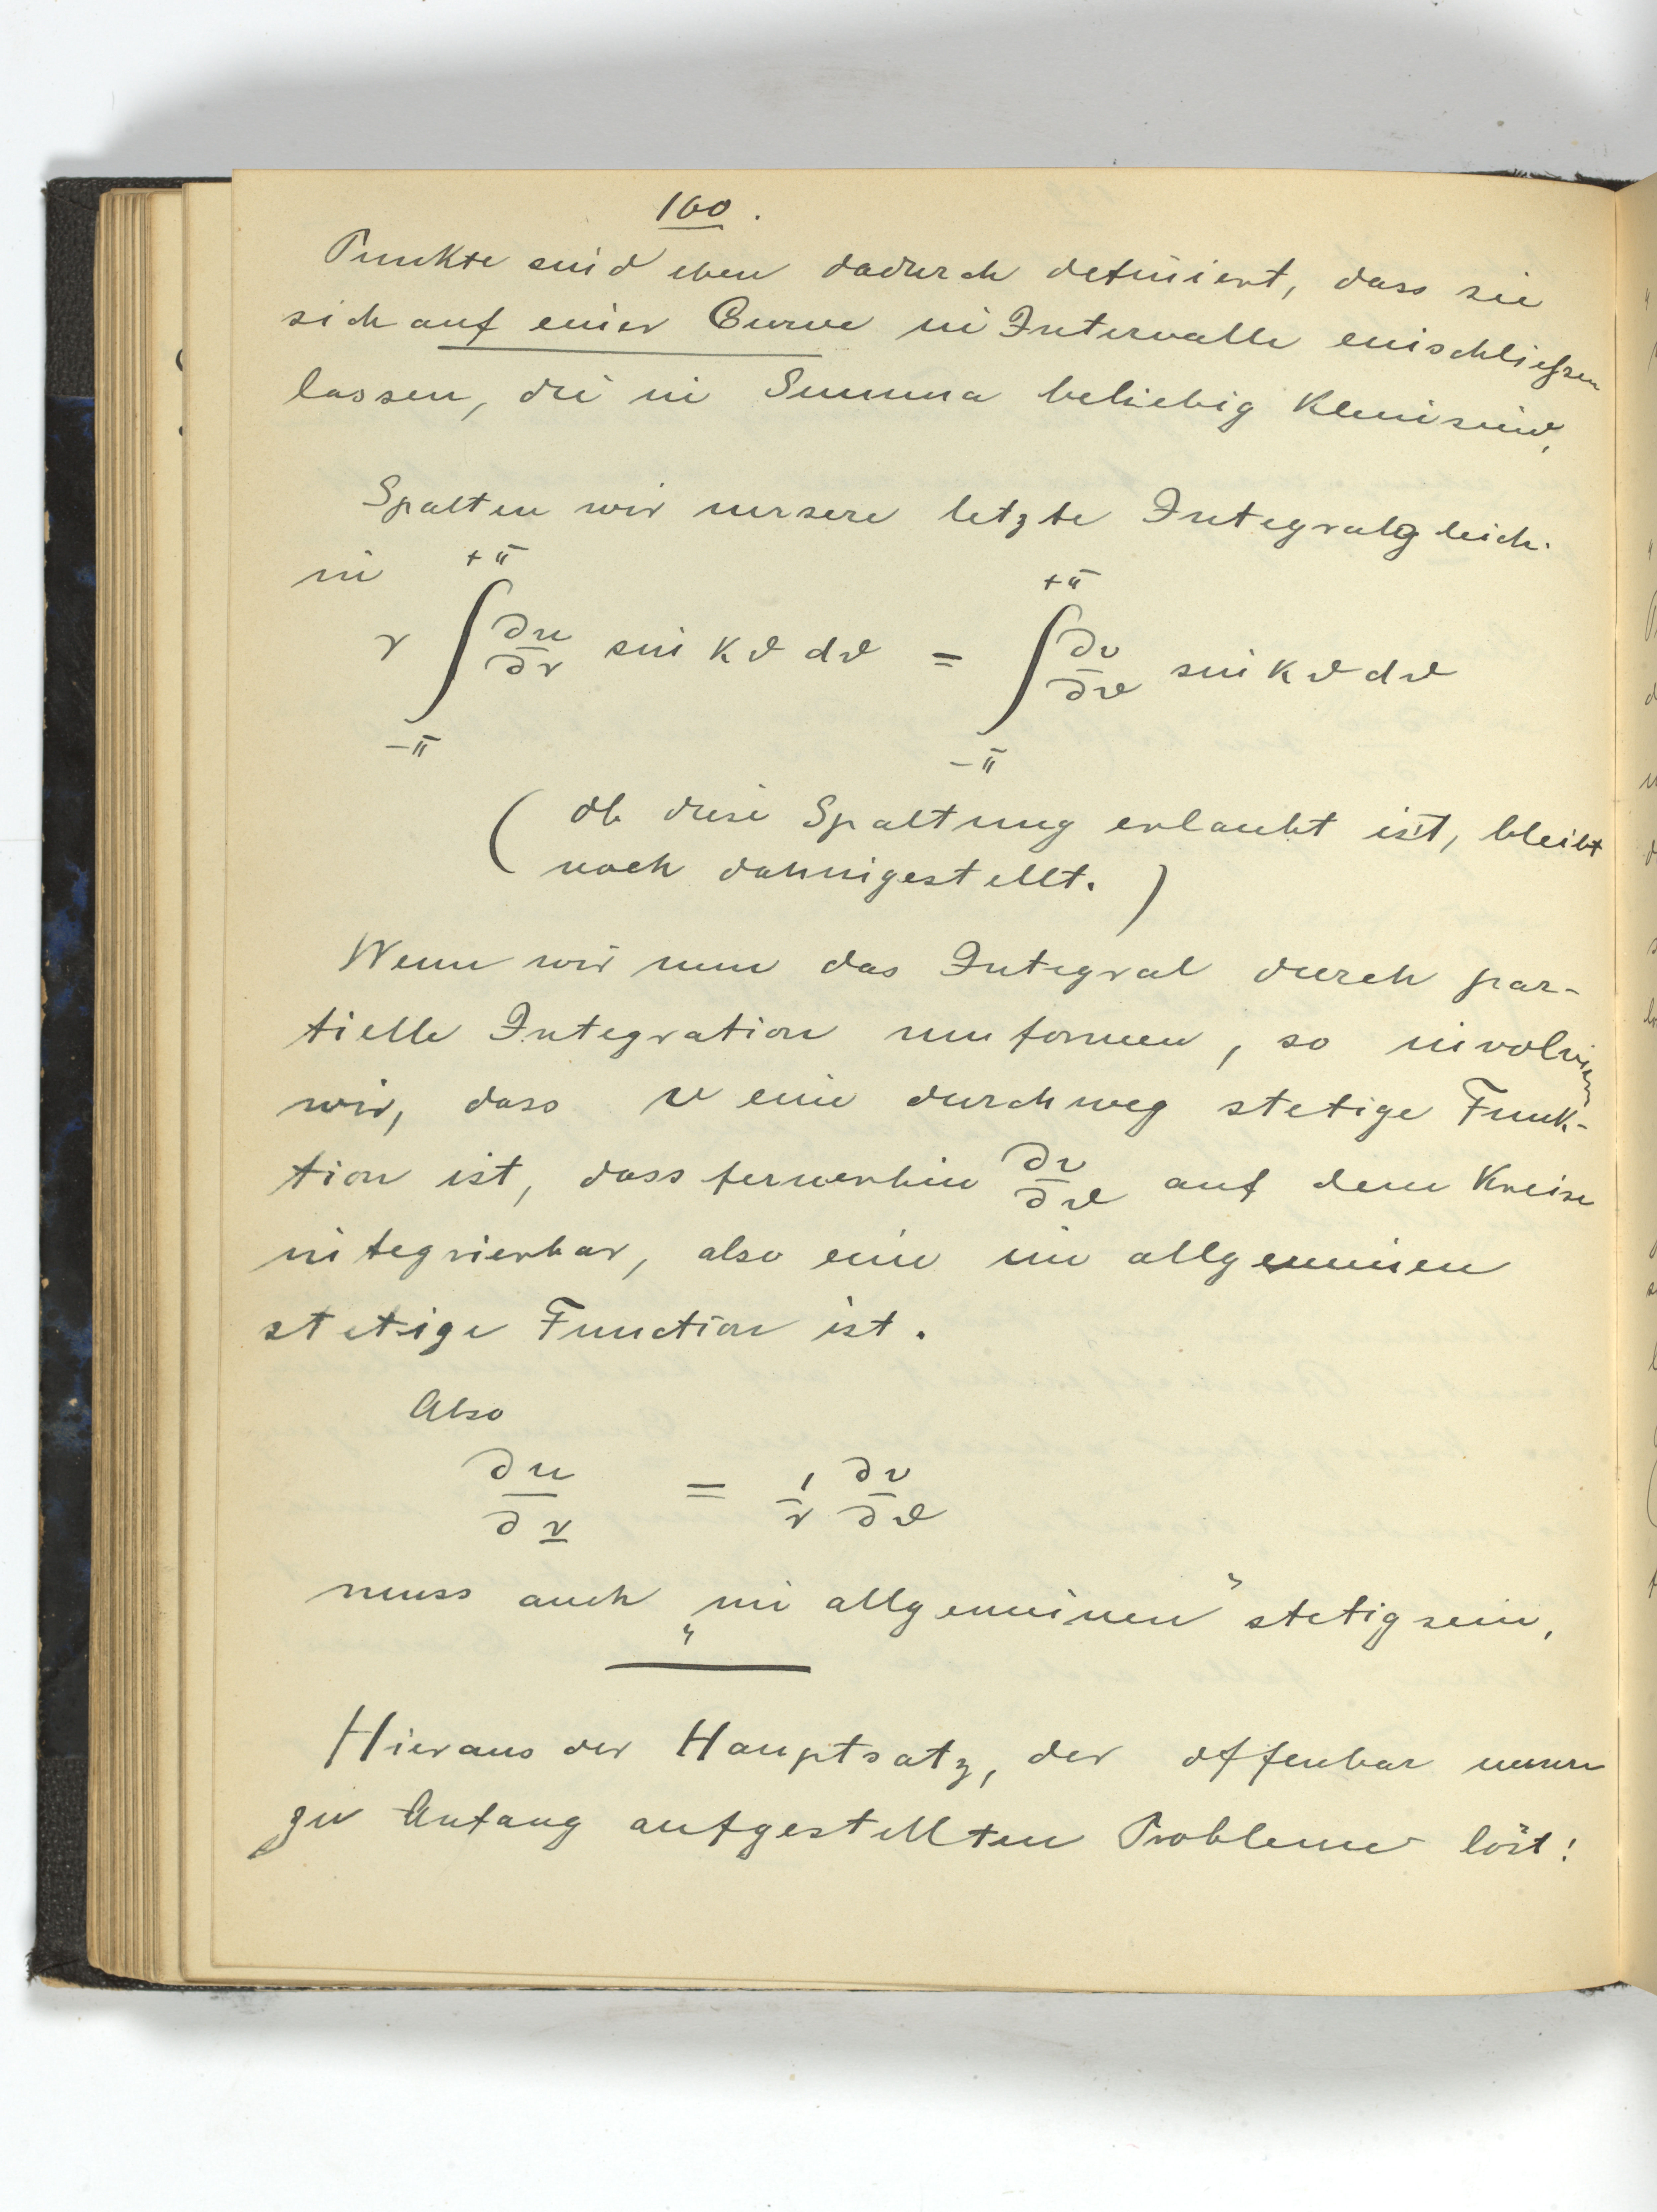 160.
Punkte sind eben dadurch definiert, dass sie
sich auf einer Curve in Intervalle einschließen
lassen, die in Summa beliebig klein sind.
Spalten wir unsere letzte Integralgleich.
in
r ∫_{-π}^{+π} ∂u/∂r sin kϑ dϑ = ∫_{-π}^{+π} ∂v/∂ϑ sin kϑ dϑ
( Ob diese Spaltung erlaubt ist, bleibt
noch dahingestellt. )
Wenn wir nun das Integral durch par-
tielle Integration umformen, so involvieren
wir, dass v eine durchweg stetige Funk-
tion ist, dass fernerhin ∂v/∂ϑ auf dem Kreise
integrierbar, also eine im allgemeinen
stetige Function ist.
Also
∂u/∂r = 1/r ∂v/∂ϑ
muss auch „im allgemeinen“ stetig sein.
Hieraus der Hauptsatz, der offenbar unsere
zu Anfang aufgestellten Probleme löst!